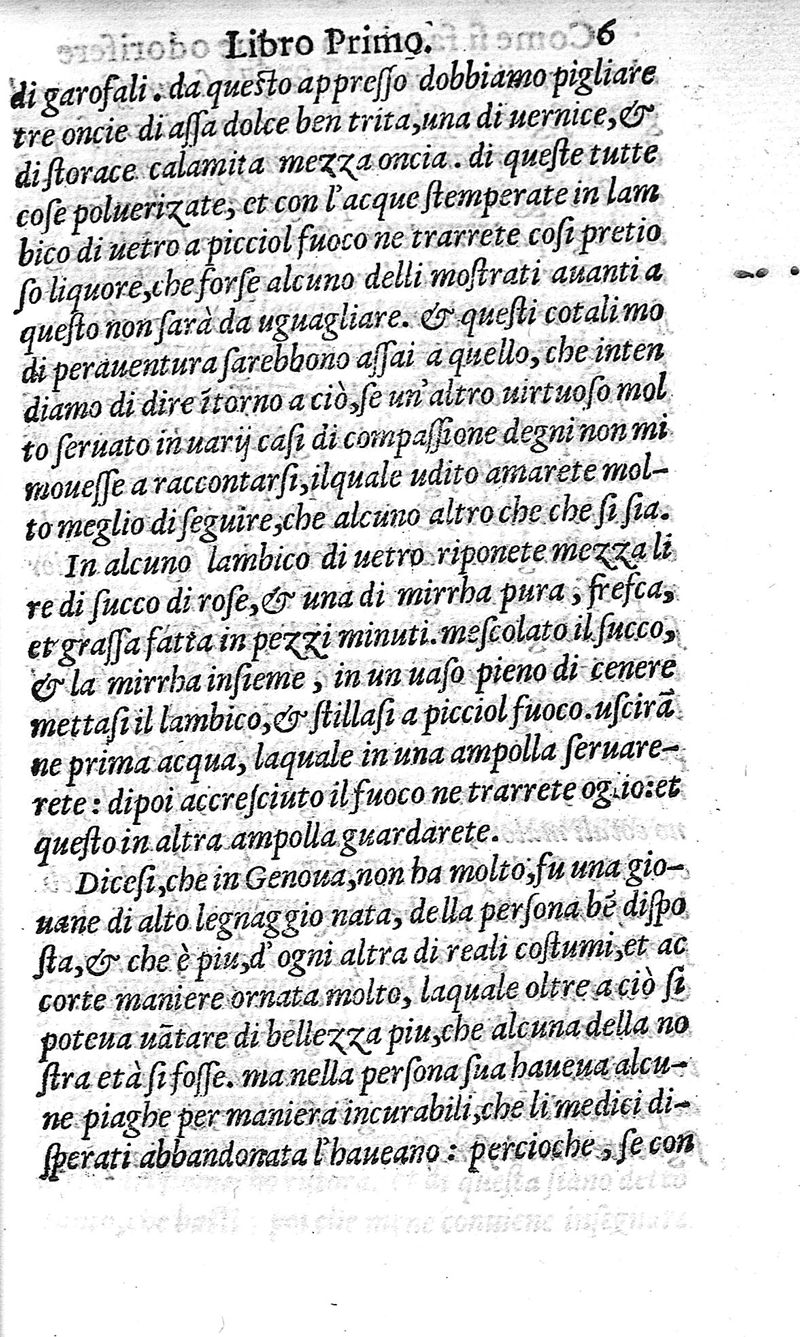 Libro Primo. 6
di garofali. da questo appresso dobbiamo pigliare
tre oncie di assa dolce ben trita, una di uernice, &
di storace calamita mezza oncia. di queste tutte
cose poluerizate, et con l'acque stemperate in lam
bico di uetro a picciol fuoco ne trarrete cosi pretio
so liquore, che forse alcuno delli mostrati auanti a
questo non sarà da uguagliare. & questi cotali mo
di perauentura sarebbono assai a quello, che inten
diamo di dire ītorno a ciò, se un'altro uirtuoso mol
to seruato in uarij casi di compassione degni non mi
mouesse a raccontarsi, ilquale udito amarete mol-
to meglio di seguire, che alcuno altro che che si sia.
In alcuno lambico di uetro riponete mezza li
re di succo di rose, & una di mirrha pura, fresca,
et grassa fatta in pezzi minuti. mescolato il succo,
& la mirrha insieme, in un uaso pieno di cenere
mettasi il lambico, & stillasi a picciol fuoco. uscirā
ne prima acqua, laquale in una ampolla seruare-
rete: dipoi accresciuto il fuoco ne trarrete oglio: et
questo in altra ampolla guardarete.
Dicesi, che in Genoua, non ha molto, fu una gio-
uane di alto legnaggio nata, della persona bē dispo
sta, & che è piu, d'ogni altra di reali costumi, et ac
corte maniere ornata molto, laquale oltre a ciò si
poteua uātare di bellezza piu, che alcuna della no
stra età si fosse. ma nella persona sua haueua alcu-
ne piaghe per maniera incurabili, che li medici di-
sperati abbandonata l'haueano: percioche, se con